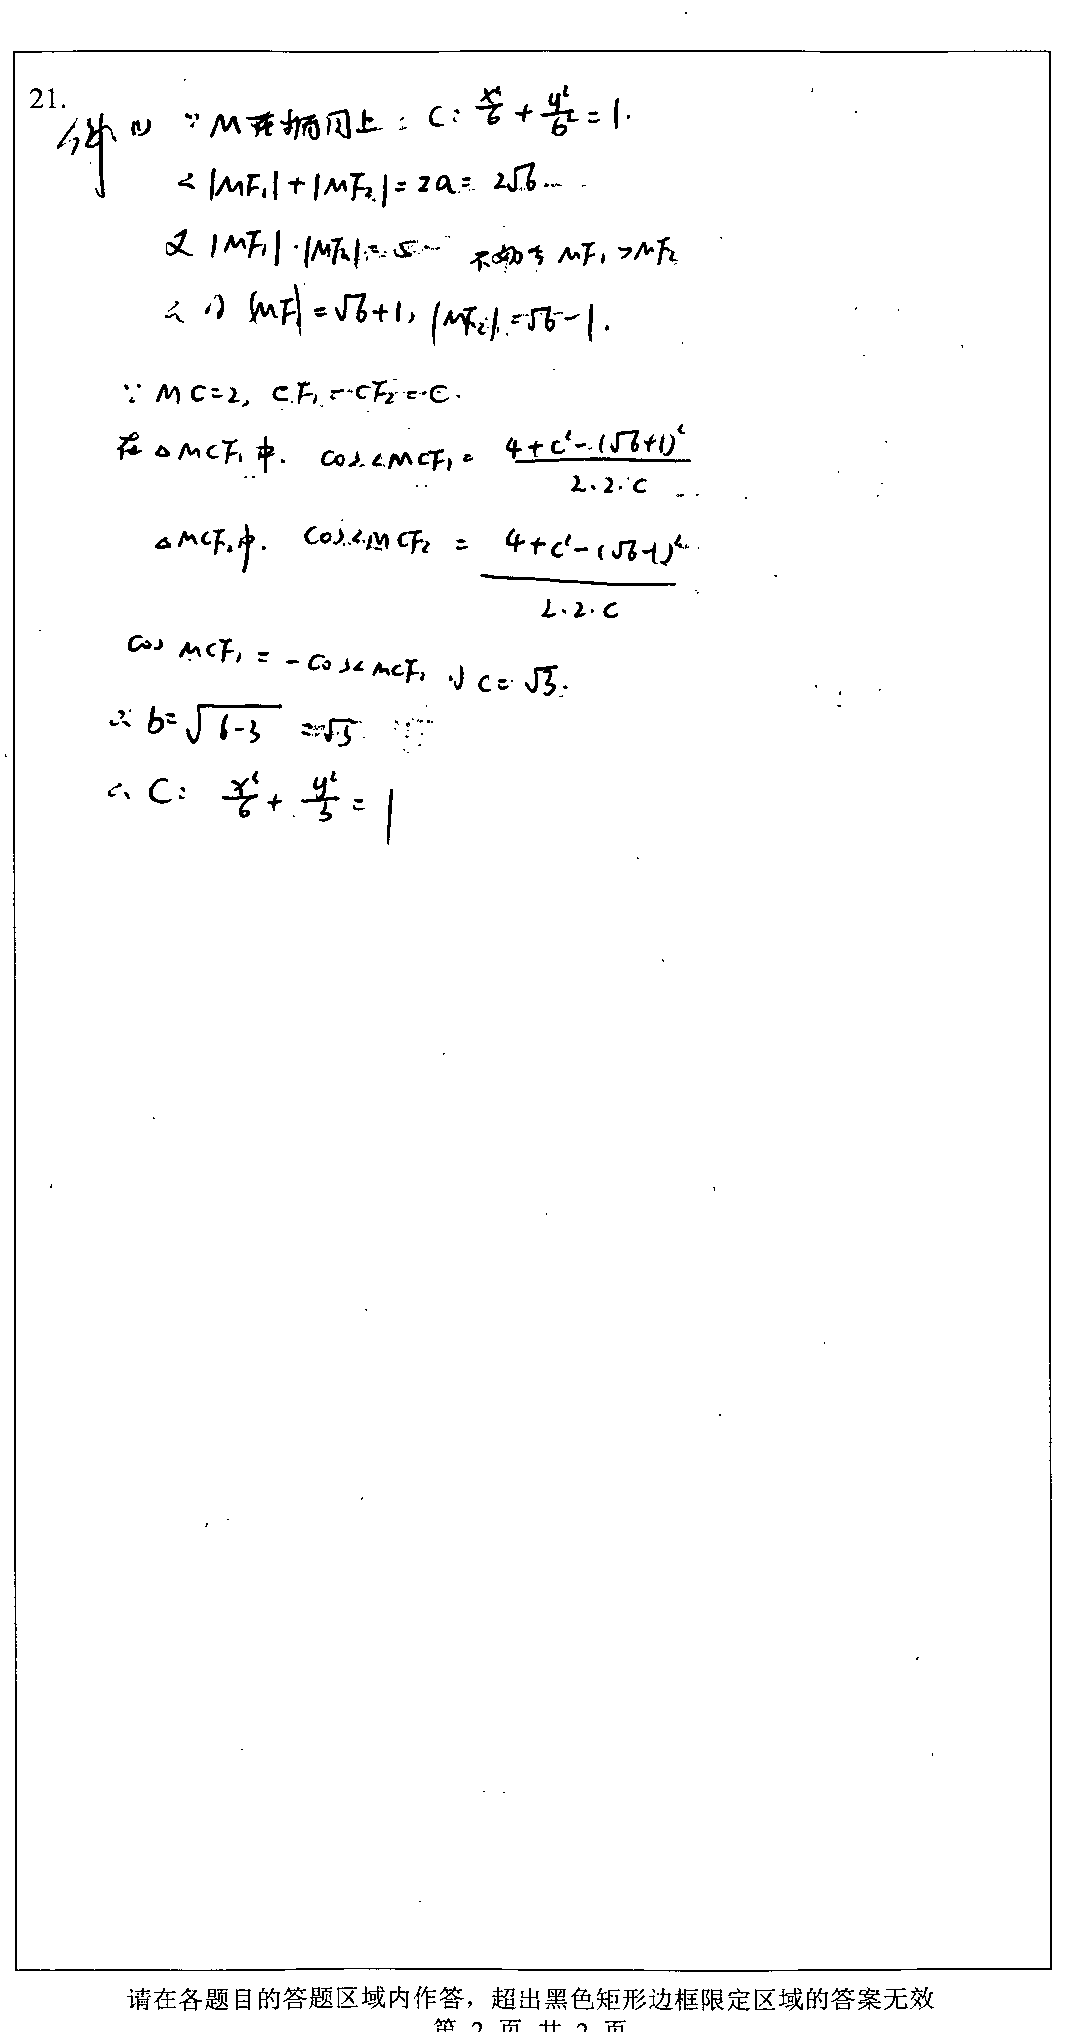 21.
解 (1) ∵ M在椭圆上：C: x²/6 + y²/b² = 1.
∴ |MF₁|+|MF₂|=2a= 2√6
又 |MF₁|·|MF₂|=5 不妨令 MF₁>MF₂
∴ |MF₁|=√6+1, |MF₂|=√6-1.
∵ MC=2, CF₁=CF₂=C.
在△MCF₁中. cos∠MCF₁= (4+c²-(√6+1)²)/(2·2·c)
△MCF₂中. cos∠MCF₂ = (4+c²-(√6-1)²)/(2·2·c)
cos MCF₁ = -cos∠MCF₂ c=√3.
∴ b=√(6-3) =√3
∴ C: x²/6 + y²/3 = 1
请在各题目的答题区域内作答，超出黑色矩形边框限定区域的答案无效
第 2 页 共 2 页